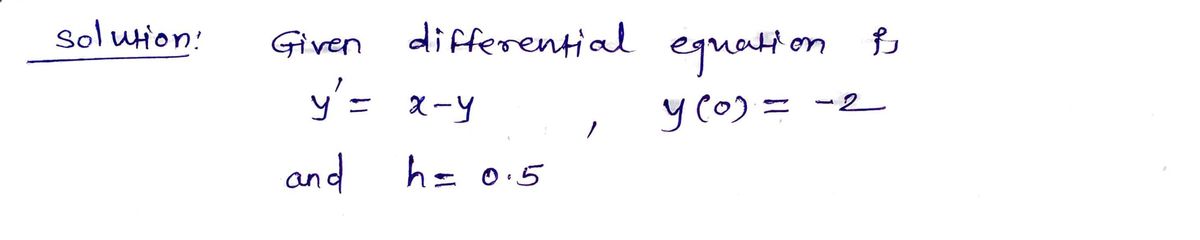 Solution: Given differential equation is
y' = x-y , y(0) = -2
and h = 0.5